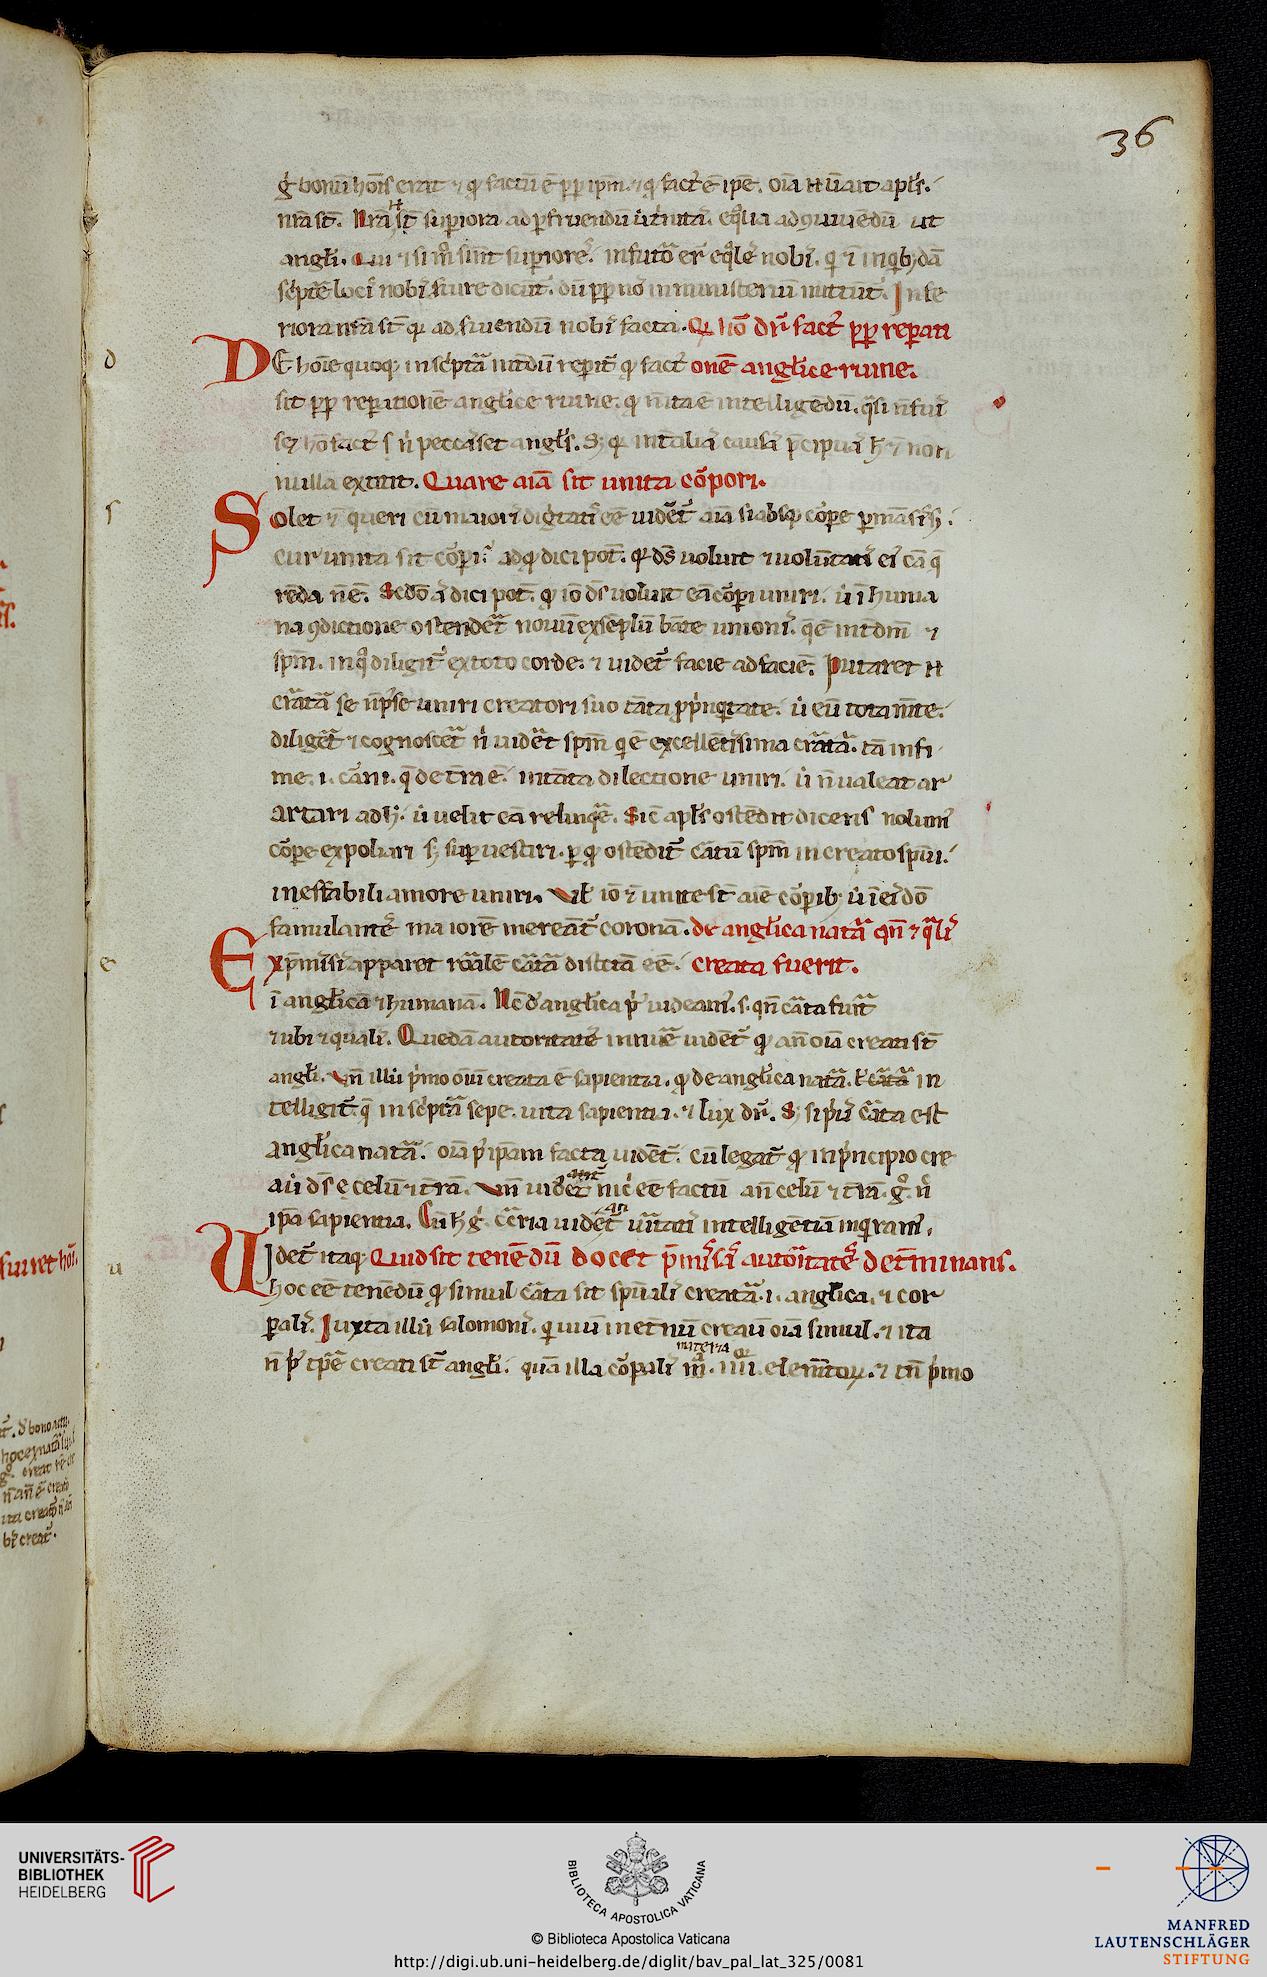 36
g̊ bonū hoīs erat ⁊ qđ factū ē ꝓp ipm̄. ⁊ qđ fact᷒ ē ip̄e. oīa .n. ūa ait apl's.
nr̄a st̄. Nr̄a .n. st̄ suꝑiora ad ꝑfruendū ut t̄nitas. eq̄lia ad ꝯuiuēdū ut
angli. Qui ⁊ si m̊ sint suꝑiores. in futo er̄t eq̄les nob̄. qi ⁊ in qibꝫdā
sc̄ptē locis nobis seruire dicunt᷒. dū ꝓp nos in ministeriū mittūt᷒. Infe
riora nr̄a st̄ quia ad seruiendū nobis facta. Qđ hō dr̄ fact᷒ ꝓp reꝑati
d
DE hoīe quoqꝫ in sc̄ptā int̄dū reꝑit᷒ qđ fact᷒ onē anglice ruine.
sit ꝓp reꝑationē anglice ruine. qđ n̄ ita ē intelligēdū. q̄si n̄ fuis
sꝫ hō fact᷒ si n̄ peccasset angl's. Sꝫ quia int̄ alias causas p̄cipuas h̄ ⁊ non
nulla extitit. Quare aīa sit unita corꝑori.
s
Solet ⁊ queri cū maioris dignitatis eē uidet᷒ aīa si absqꝫ corꝑe ꝑmāsiss.
cur unita sit corꝑi. ad qđ dici pot̄. quia ds̄ uoluit ⁊ uolūtatis ei᷒ cā q̄
rēda n̄ ē. Scđo ā dici pot̄. qđ iō ds̄ uoluit eā corꝑi uniri. ut ī huma
na ꝯdictione ostenderet nouū exēplū bāte unionis. que ē int̄ dm̄ ⁊
spm̄. in qa diligit᷒ ex toto corde. ⁊ uidet᷒ facie ad faciē. Putaret .n.
cr̄atā se n̄ posse uniri creatori suo tāta ꝓpīnqitate. ut eū tota m̄te.
diligeret ⁊ cognosceret nisi uideret spm̄ qi ē excellētissima cr̄atā. tā infi
me. i. carni. que de t̄ra ē. in tāta dilectione uniri. ut n̄ ualeat ar
artari ad h̄. ut uelit eā relinqere. Sic apl's ostēdit dicens nolum᷒
corꝑe expoliari sꝫ supuestiri. ꝑ qđ ostēdit᷒ cātum spm̄ increato spui.
ineffabili amore uniri. Vl' iō ⁊ unite st̄ aīe corꝑibꝫ ut ī eis dō
famulantes maiorē mereāt᷒ coronā. de anglica natā qn̄ ⁊ q̄lis
e
Ex p̄missis apparet rōalē cātā distctā eē. creata fuerit.
ī anglicā ⁊ humanā. Nc̄ de anglica p᷒ uideam᷒. s. qn̄ cāta fuit
⁊ ubi ⁊ qualis. Quedā autoritates innuere uidēt᷒ qđ an̄ oīa creati st̄
angli. Vn̄ illđ p᷒mo oīū creata ē sapientia. qđ de anglica natā in
telligit᷒. que in sc̄ptā sepe uita sapientia. ⁊ lux dr̄. Sꝫ si p᷒us cāta est
anglica natā. oīa post ipam facta uidēt᷒. cū legat᷒ qđ in p᷒ncipio cre
auit ds̄ celū ⁊ t̄rā. Vn̄ uidet᷒ nich eē factū an̄ celū ⁊ t̄rā. g̊ n̄
ipa sapientia. Cū h̄ g̊ ꝯt̄ria uident᷒ uitatis intelligētiā inqiram᷒.
u
Videt᷒ itaqꝫ Quid sit tenēdū docet p̄missas autoritates det̄minans.
hoc eē tenēdū qđ simul cāta sit spūalis creatā. i. anglica. ⁊ cor
ꝑalis. Iuxta illđ salomonis. qi uiuit in et̄nū creauit oīa simul. ⁊ ita
n̄ p᷒ tp̄e creati st̄ angli. quā illa corꝑalis mā materia .iiii. elemtorꝫ. ⁊ tn̄ p᷒mo
UNIVERSITÄTS-
BIBLIOTHEK
HEIDELBERG
BIBLIOTECA APOSTOLICA VATICANA
© Biblioteca Apostolica Vaticana
http://digi.ub.uni-heidelberg.de/diglit/bav_pal_lat_325/0081
MANFRED
LAUTENSCHLÄGER
STIFTUNG